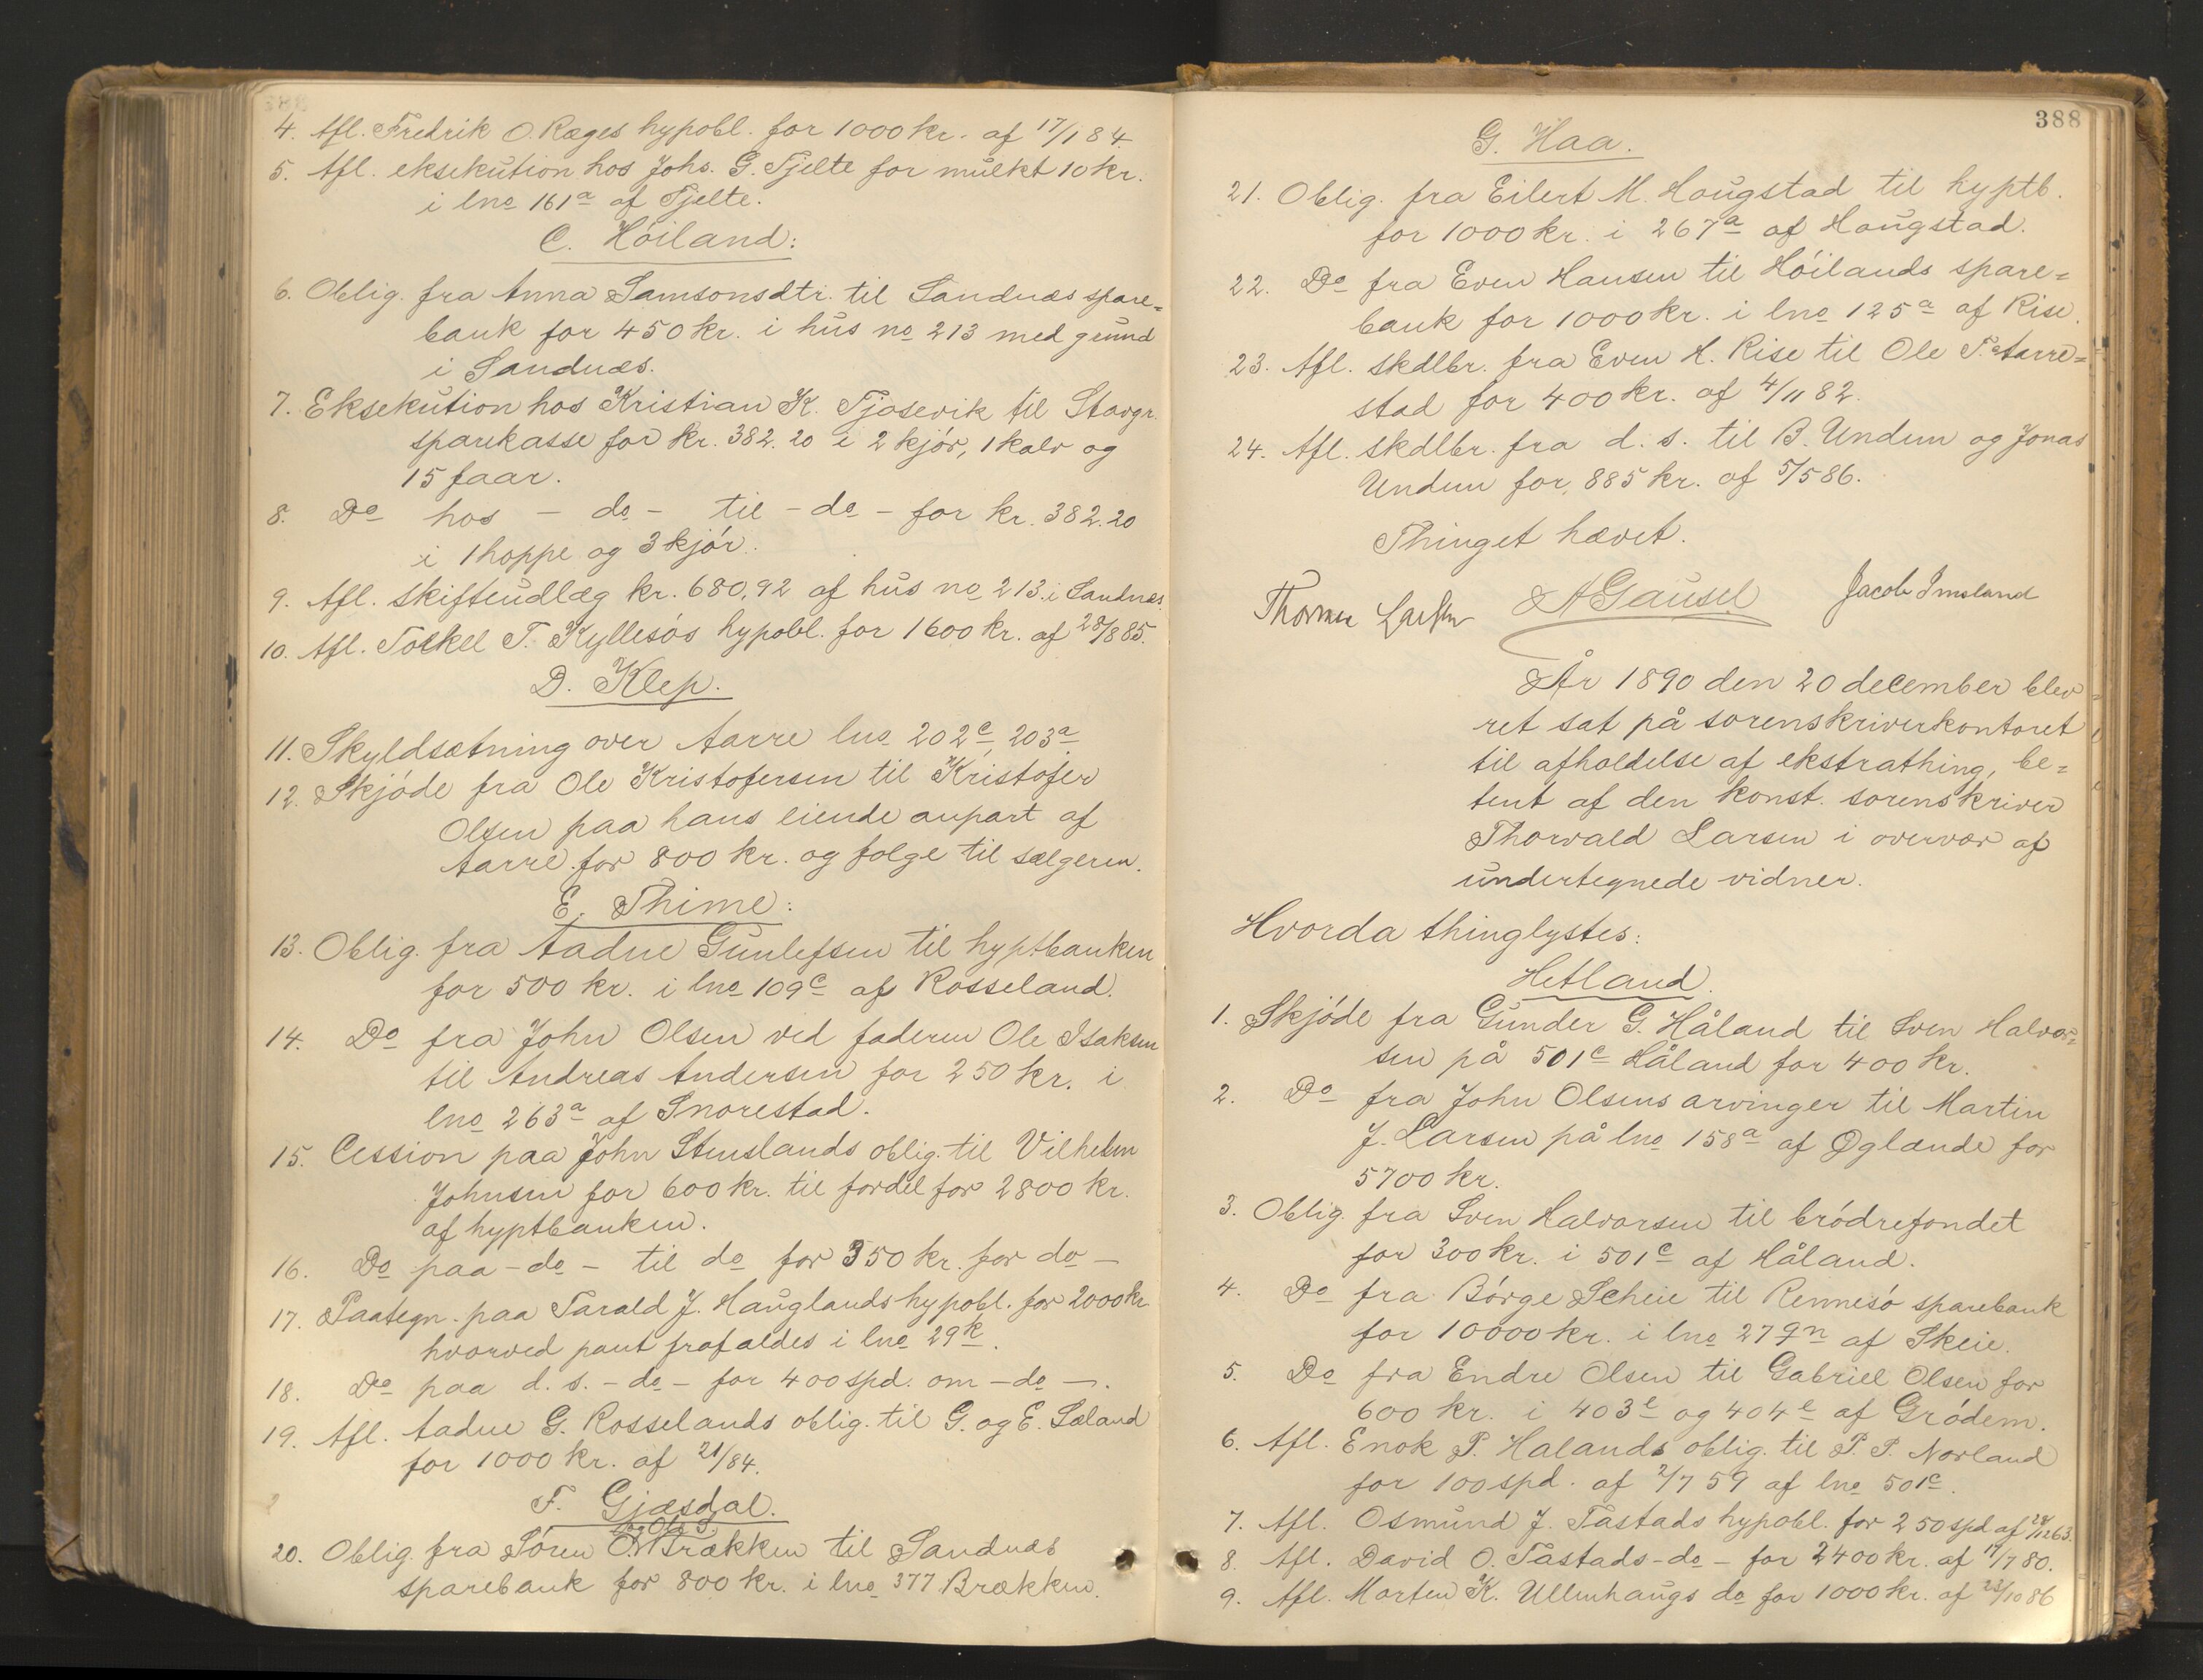 4. Afl. Fredrik O. Røges hypobl. for 1000 kr. af 17/1 84.
5. Afl. eksekution hos Johs. G. Tjelte for mulkt 10 kr.
i lno 161a af Tjelte.
C. Höiland:
6. Oblig. fra Anna Samsonsdtr. til Sandnæs spare=
bank for 450 kr. i hus no 213 med grund
i Sandnæs.
7. Eksekution hos Kristian K. Tjosevik til Stavgr.
sparekasse for kr. 382.20 i 2 kjör, 1 kalv og
15 faar.
8. Do hos - do - til - do - for kr. 382.20
i 1 hoppe og 3 kjör.
9. Afl. skifteudlæg kr. 680,92 af hus no 213 i Sandnæs.
10. Afl. Tolkel T. Kyllesös hypobl. for 1600 kr. af 28/8 85.
D. Klep.
11. Skyldsætning over Aarre lno 202c, 203a.
12. Skjöde fra Ole Kristofersen til Kristofer
Olsen paa hans eiende anpart af
Aarre for 800 kr. og folge til sælgeren.
E. Thime:
13. Oblig. fra Aadne Gunlefsen til hyptbanken
for 500 kr. i lno 109c af Rosseland.
14. Do fra John Olsen ved faderen Ole Isaksen
til Andreas Andersen for 250 kr. i
lno 263a af Snorestad.
15. Cession paa John Stenslands oblig. til Vilhelm
Johnsen for 600 kr. til fordel for 2800 kr.
af hyptbanken.
16. Do paa - do - til do for 350 kr. for do -
17. Paategn. paa Tarald J. Hauglands hypobl. for 2000 kr
hvorved pant frafaldes i lno 29k.
18. Do paa d. s. - do - for 400 spd. om - do -.
19. Afl. Aadne G. Rosselands oblig. til G. og E. Sæland
for 1000 kr. af 21/84.
F. Gjæsdal.
og Ole S.
20. Oblig. fra Sören O. Brækken til Sandnæs
sparebank for 800 kr. i lno 377 Brækken.
388
G. Haa.
21. Oblig. fra Eilert M. Haugstad til hyptb.
for 1000 kr. i 267a af Haugstad.
22. Do fra Even Hansen til Höilands spare=
bank for 1000 kr. i lno 125a af Rise.
23. Afl. skdlbr. fra Even H. Rise til Ole T. Aarre=
stad for 400 kr. af 4/11 82.
24. Afl. skdlbr. fra d. s. til B. Undem og Jonas
Undem for 885 kr. af 5/5 86.
Thinget hævet.
Thorvald Larsen A Gausel Jacob Imsland
År 1890 den 20 december blev
ret sat på sorenskriverkontoret
til afholdelse af ekstrathing, be=
tent af den konst. sorenskriver
Thorvald Larsen i overvær af
undertegnede vidner.
Hvorda thinglystes:
Hetland.
1. Skjöde fra Gunder G. Håland til Sven Halvor=
sen på 501c Håland for 400 kr.
2. Do fra John Olsens arvinger til Martin
J. Larsen på lno 158a af Øglænde for
5700 kr.
3. Oblig. fra Sven Halvorsen til brödrefondet
for 300 kr. i 501c af Håland.
4. Do fra Börge Scheie til Rennesö sparebank
for 10000 kr. i lno 279n af Skeie.
5. Do fra Endre Olsen til Gabriel Olsen for
600 kr. i 403e og 404e af Grödem.
6. Afl. Enok P. Halands oblig. til P. P. Norland
for 100 spd. af 2/7 59 af lno 501c.
7. Afl. Osmund J. Tastads hypobl. for 250 spd af 24/12 63.
8. Afl. David O. Tastads - do - for 2400 kr. af 19/7 80.
9. Afl. Morten K. Ullenhaugs do for 1000 kr. af 23/10 86